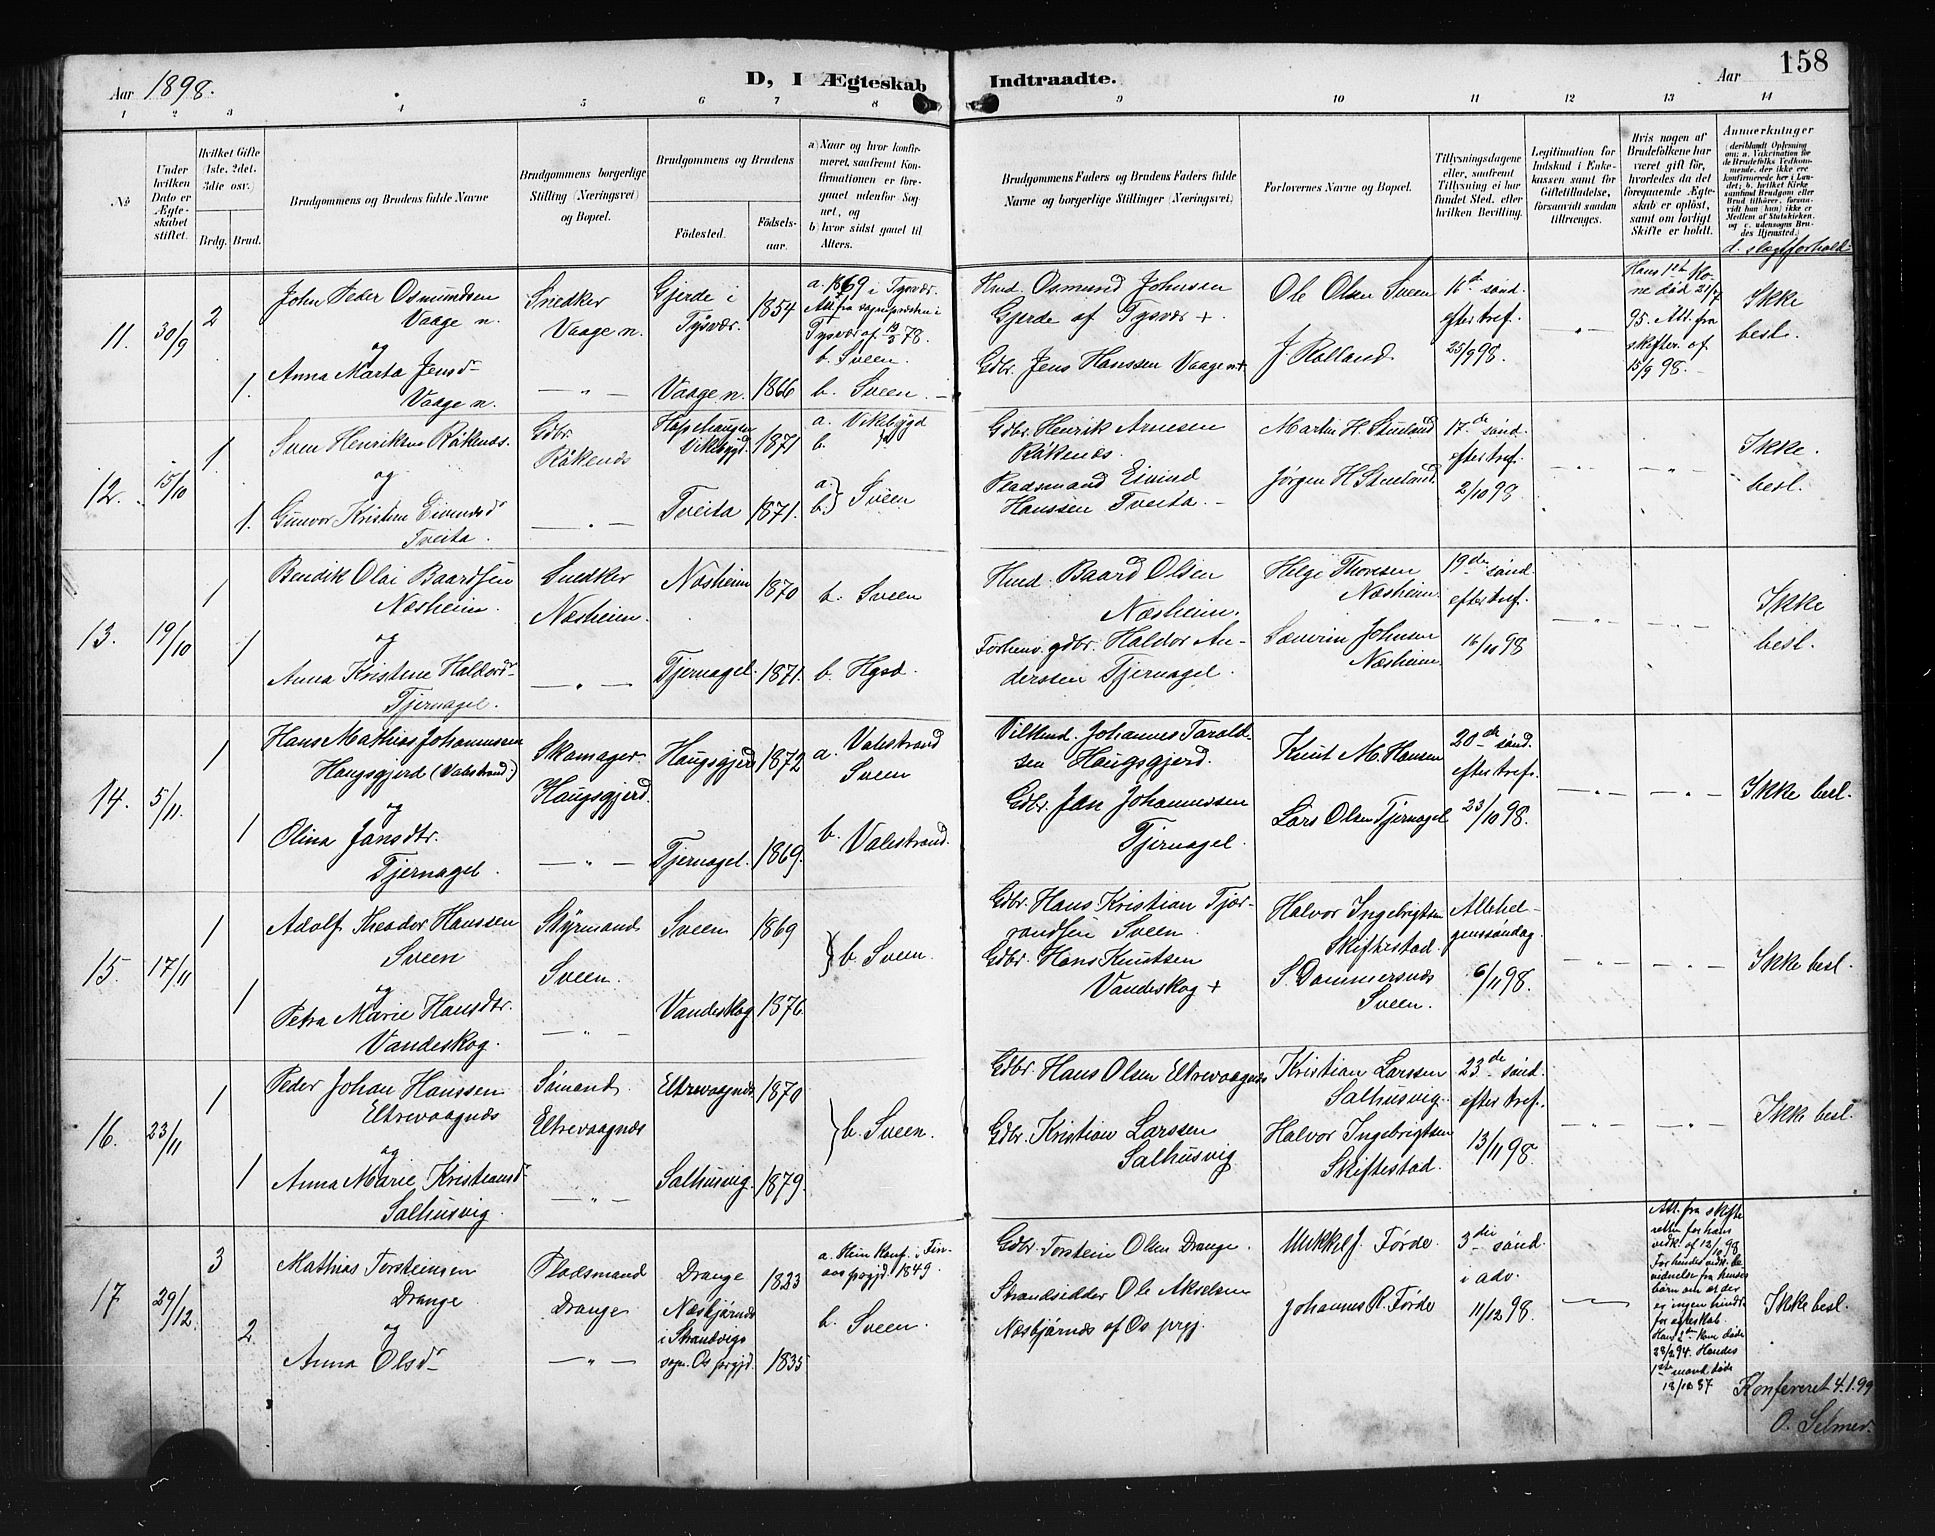 158
Aar 1898.
D, I Ægteskab Indtraadte.
Aar
1 2 3 4 5 6 7 8 9 10 11 12 13 14
No
Under hvilken Dato er Ægteskabet stiftet.
Hvilket Gifte (1ste, 2det, 3die osv.)
Brdg. Brud.
Brudgommens og Brudens fulde Navne
Brudgommens borgerlige Stilling (Næringsvei) og Bopæl.
Brudgommens og Brudens
Fødested.
Fødselsaar.
a) Naar og hvor konfirmeret, saafremt Konfirmationen er foregaaet udenfor Sognet, og
b) hvor sidst gaaet til Alters.
Brudgommens Faders og Brudens Faders fulde Navne og borgerlige Stillinger (Næringsvei)
Forlovernes Navne og Bopæl.
Tillysningsdagene eller, saafremt Tillysning ei har fundet Sted, efter hvilken Bevilling.
Legitimation for Indskud i Enkekassen samt for Giftetilladelse, forsaavidt saadan tiltrænges.
Hvis nogen af Brudefolkene har været gift før, hvorledes da det foregaaende Ægteskab er opløst, samt om lovligt Skifte er holdt.
Anmærkninger
(deriblandt Oplysning om: a. Vakcination for de Brudefolks Vedkommende, der ikke ere konfirmerede her i Landet; b. hvilket Kirkesamfund Brudgom eller Brud tilhører, forsaavidt han (hun) ikke er Medlem af Statskirken, og c. udensogns Brudes Hjemsted.)
d. slægtforhold.
11. 30/9 2
John Peder Osmundsen
Vaage n.
og
1. Anna Marta Jensd
Vaage n.
Snedker
Vaage n.
— " —
Gjerde i
Tysvær. 1854
Vaage n. 1866
a. 1869 i Tysvær.
Att. fra sognepresten i
Tysvær af 19/3 78.
b. Sveen.
b. Sveen.
Kmd. Osmund Johnsen
Gjerde af Tysvær +.
Gdbr. Jens Hanssen Vaage n +
Ole Olsen Sveen
J. Rolland.
16de sønd.
efter tref.
25/9 98.
"
Hans 1ste Kone død 21/7
95. Att. fra
skifter. af
15/9 98.
Ikke
besl.
12. 15/10 1.
Sven Henriksen Räkenes.
og
1. Gunvor Kristine Eivindsd
Tveita.
Gdbr.
Räkenes
— " —
Vikebygd. 1871
Tveita 1871.
a. Vikebygd
b. do
a. b. } Sveen
Gdbr. Henrik Arnesen
Räkenes.
Pladsmand Eivind
Hanssen Tveita.
Martin H. Stueland
Jørgen H. Stueland
17de sønd.
efter tref.
2/10 98.
- " -
- " -
Ikke.
besl.
13. 19/10 1
Bendik Olai Baardsen
Næsheim.
og
1 Anna Kristine Haldord
Tjernagel.
Snedker
Næsheim.
— " —
Næsheim 1870
Tjernagel. 1871.
b. Sveen
b. Hgsd.
Kmd. Baard Olsen
Næsheim.
Forhenv. gdbr. Haldor Anderssen Tjernagel.
Helge Thoresen
Næsheim
Sæverin Johnsen
Næsheim.
19de sønd.
efter tref.
16/10 98
- " -
- " -
Ikke
besl.
14. 5/11 1
Hans Mathias Johannessen
Haugsgjerd (Valestrand.)
og
1 Olina Jansdtr.
Tjernagel.
Skomager
Haugsgjerd.
— " —
Haugsgjerd 1872
Tjernagel. 1869.
a. Valestrand
Sveen
b. Valestrand.
Johannes Taraldsen Haugsgjerd.
Gdbr. Jan Johannessen
Tjernagel.
Knut M. Hansen
Lars Olsen Tjernagel
20de sønd.
efter tref.
23/10 98.
- " -
- " -
Ikke besl.
15. 17/11 1
Adolf Theodor Hanssen
Sveen
og
1 Petra Marie Hansdtr.
Vandeskog.
Styrmand
Sveen.
— " —
Sveen 1869
Vandeskog 1876.
} b. Sveen.
Gdbr. Hans Kristian Tjørandsen Sveen.
Gdbr. Hans Knutsen
Vandeskog +
Halvor Ingebrigtsen
Skiftestad.
S. Dommersnæs
Sveen.
Allehelgenssøndag.
6/11 98.
- " -
- " -
Ikke besl.
16. 23/11 1
Peder Johan Hanssen
Eltrevaagnæs
og
1 Anna Marie Kristiansd
Salhusvig.
Sømand
Eltrevaagnæs
— " —
Eltrevaagnæs 1870
Salhusvig. 1879.
} b. Sveen.
Gdbr. Hans Olsen Eltrevaagnæs
Gdbr. Kristian Larssen
Salhusvig
Kristian Larssen
Salhusvig.
Halvor Ingebrigtsen
Skiftestad.
23de sønd.
efter tref.
13/11 98.
- " -
- " -
Ikke besl.
17 29/12. 3
Mathias Torsteinsen
Drange
og
2. Anna Olsd
Pladsmand
Drange
— " —
Drange 1823
Næsbjørnæs
i Strandvigs
sogn. Os prgjd. 1835
a. Hin Konf. i Finaas prgjd. 1849.
b. Sveen.
Gdbr. Torstein Olsen Drange.
Strandsidder Ole Akselsen
Næsbjørnæs af Os prgj.
Mikkel J. Førde.
Johannes R. Førde
3die sønd.
i adv.
11/12 98.
Att. fra skifte
retten for hans
vedk. af 12/12 98
For hendes vedk. bevidnelse fra hendes
børn om at der
ej ingen hindr.
for ægteskab.
Hans 2den kone døde
28/2 94. Hendes
1ste mand døde
18/10 87
Ikke besl.
Konfereret 4.1.99
O. Selmer.